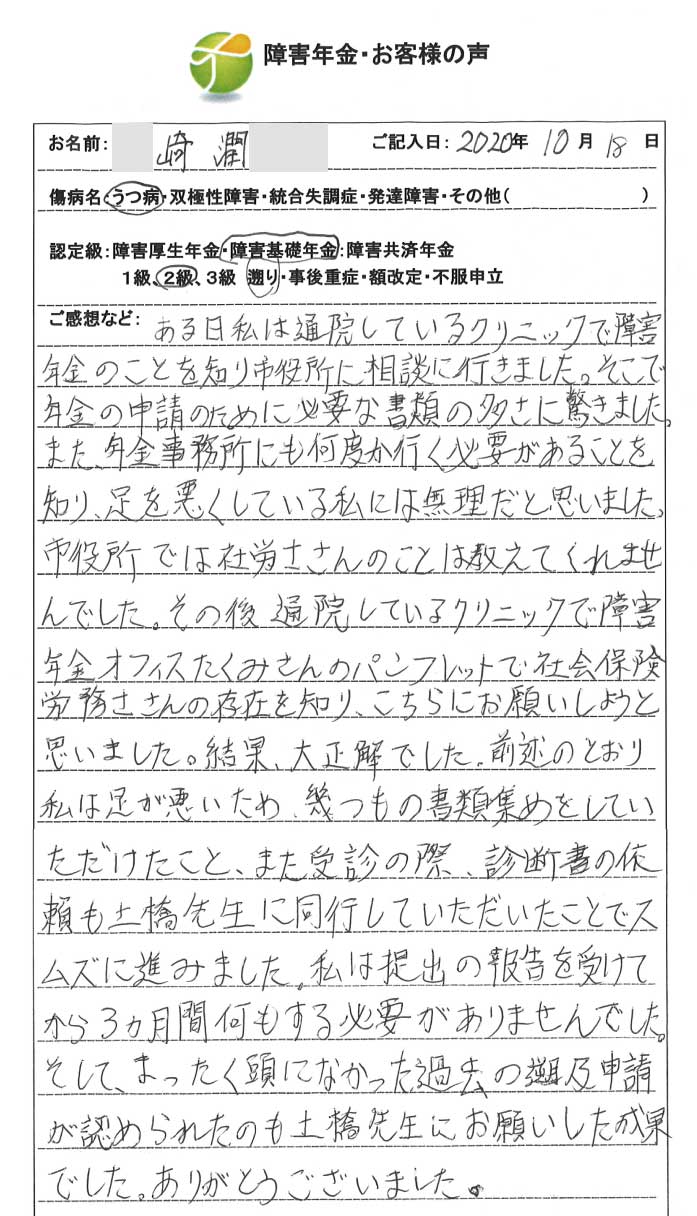 障害年金・お客様の声
お名前： 崎 潤 ご記入日：2020年 10 月 18 日
傷病名：うつ病・双極性障害・統合失調症・発達障害・その他（ ）
認定級：障害厚生年金・障害基礎年金：障害共済年金
1級、2級、3級 遡り・事後重症・額改定・不服申立
ご感想など： ある日私は通院しているクリニックで障害
年金のことを知り市役所に相談に行きました。そこで
年金の申請のために必要な書類の多さに驚きました。
また、年金事務所にも何度か行く必要があることを
知り、足を悪くしている私には無理だと思いました。
市役所では社労士さんのことは教えてくれませ
んでした。その後通院しているクリニックで障害
年金オフィスたくみさんのパンフレットで社会保険
労務士さんの存在を知り、こちらにお願いしようと
思いました。結果、大正解でした。前述のとおり
私は足が悪いため、幾つもの書類集めをしてい
ただけたこと、また受診の際、診断書の依
頼も土橋先生に同行していただいたことでス
ムズに進みました。私は提出の報告を受けて
から3ヵ月間何もする必要がありませんでした。
そして、まったく頭になかった過去の遡及申請
が認められたのも土橋先生にお願いした成果
でした。ありがとうございました。